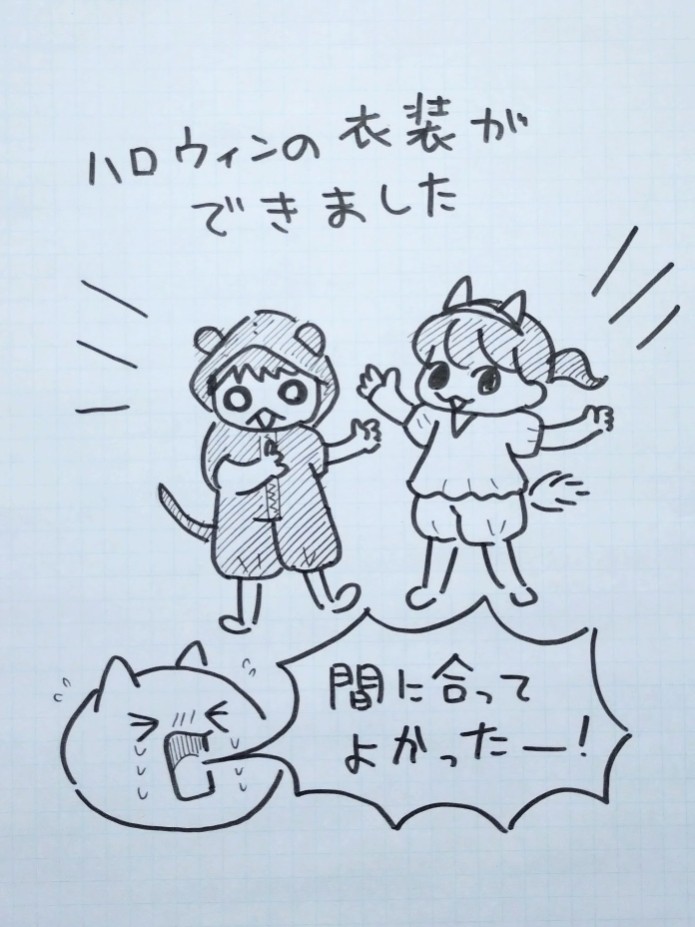 ハロウィンの衣装が
できました
間に合って
よかったー!